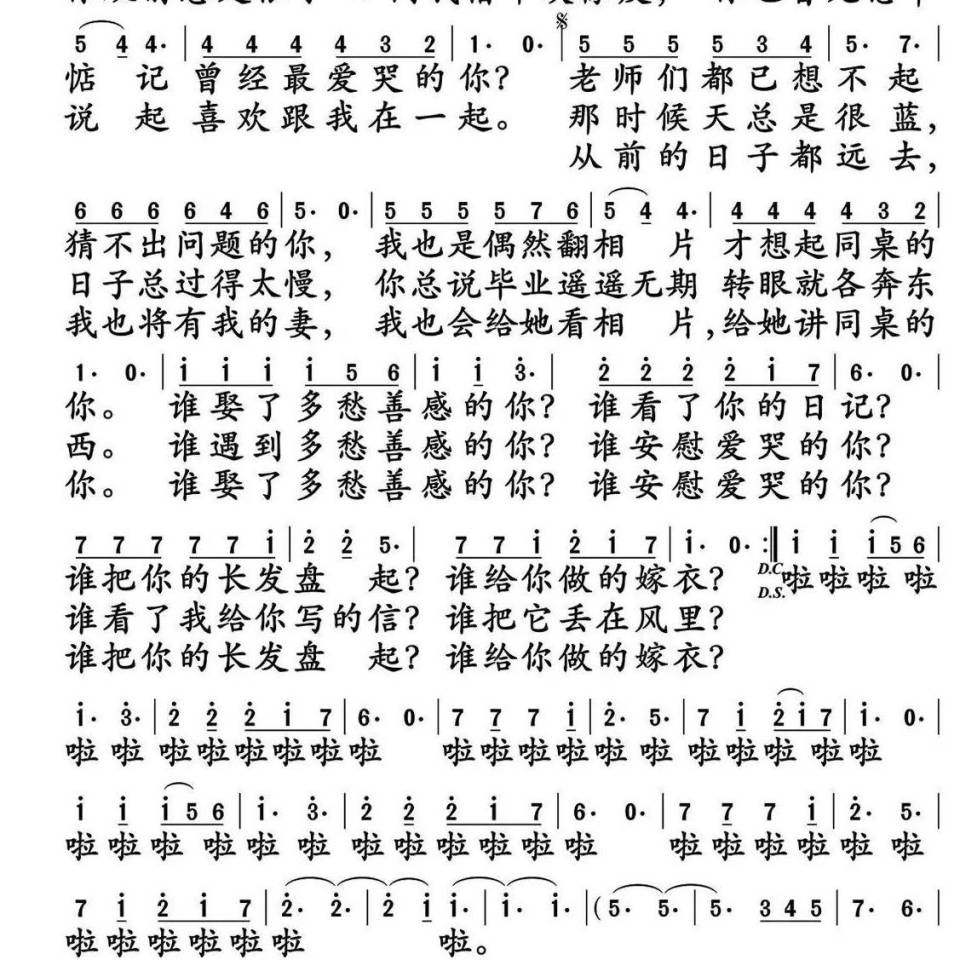 5 4 4· | 4 4 4 4 3 2 | 1· 0· | 5 5 5 5 3 4 | 5· 7· |
惦 记 曾经最爱哭的你? 老师们都已想不起
说 起 喜欢跟我在一起。 那时候天总是很蓝,
从前的日子都远去,
6 6 6 6 4 6 | 5· 0· | 5 5 5 5 7 6 | 5 4 4· | 4 4 4 4 3 2 |
猜不出问题的你, 我也是偶然翻相 片 才想起同桌的
日子总过得太慢, 你总说毕业遥遥无期 转眼就各奔东
我也将有我的妻, 我也会给她看相 片,给她讲同桌的
1· 0· | i i i i 5 6 | i i 3· | 2 2 2 2 i 7 | 6· 0· |
你。 谁娶了多愁善感的你? 谁看了你的日记?
西。 谁遇到多愁善感的你? 谁安慰爱哭的你?
你。 谁娶了多愁善感的你? 谁安慰爱哭的你?
7 7 7 7 7 i | 2 2 5· | 7 7 i 2 i 7 | i· 0· :‖ i i i 5 6 |
谁把你的长发盘 起? 谁给你做的嫁衣? D.C. 啦啦啦 啦
D.S.
谁看了我给你写的信? 谁把它丢在风里?
谁把你的长发盘 起? 谁给你做的嫁衣?
i· 3· | 2 2 2 i 7 | 6· 0· | 7 7 7 i | 2· 5· | 7 i 2 i 7 | i· 0· |
啦 啦 啦啦啦啦啦啦 啦啦啦啦 啦 啦 啦啦啦 啦啦 啦
i i i 5 6 | i· 3· | 2 2 2 i 7 | 6· 0· | 7 7 7 i | 2· 5· |
啦啦啦 啦 啦 啦 啦啦啦啦啦 啦 啦啦啦啦 啦 啦
7 i 2 i 7 | 2· 2· | 2 i i· | i· i· | (5· 5· | 5· 3 4 5 | 7· 6· |
啦啦啦啦啦 啦 啦。